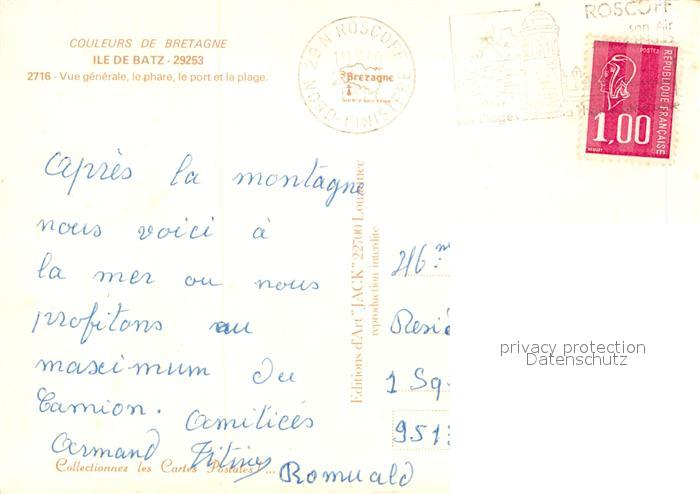 COULEURS DE BRETAGNE
ILE DE BATZ - 29253
2716 - Vue générale, le phare, le port et la plage.
29 N ROSCOFF
NORD-FINISTERE
Bretagne
ROSCOFF
son Air
POSTES
REPUBLIQUE FRANÇAISE
1,00
après la montagne
nous voici à
la mer ou nous
profitons au
maximum du
Camion. Amitiés
Armand Titines
Romuald
Editions d'Art "JACK" 22700 Louannec
reproduction interdite
Resi
1 Sq
951
privacy protection
Datenschutz
Collectionnez les Cartes Postales ...